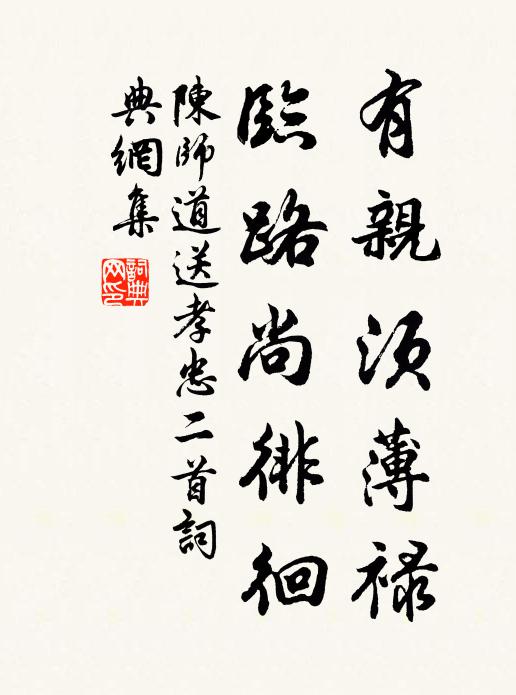 有親須薄祿
臨路尚徘徊
陳師道送孝忠二首詞
典網集
詞典
网印